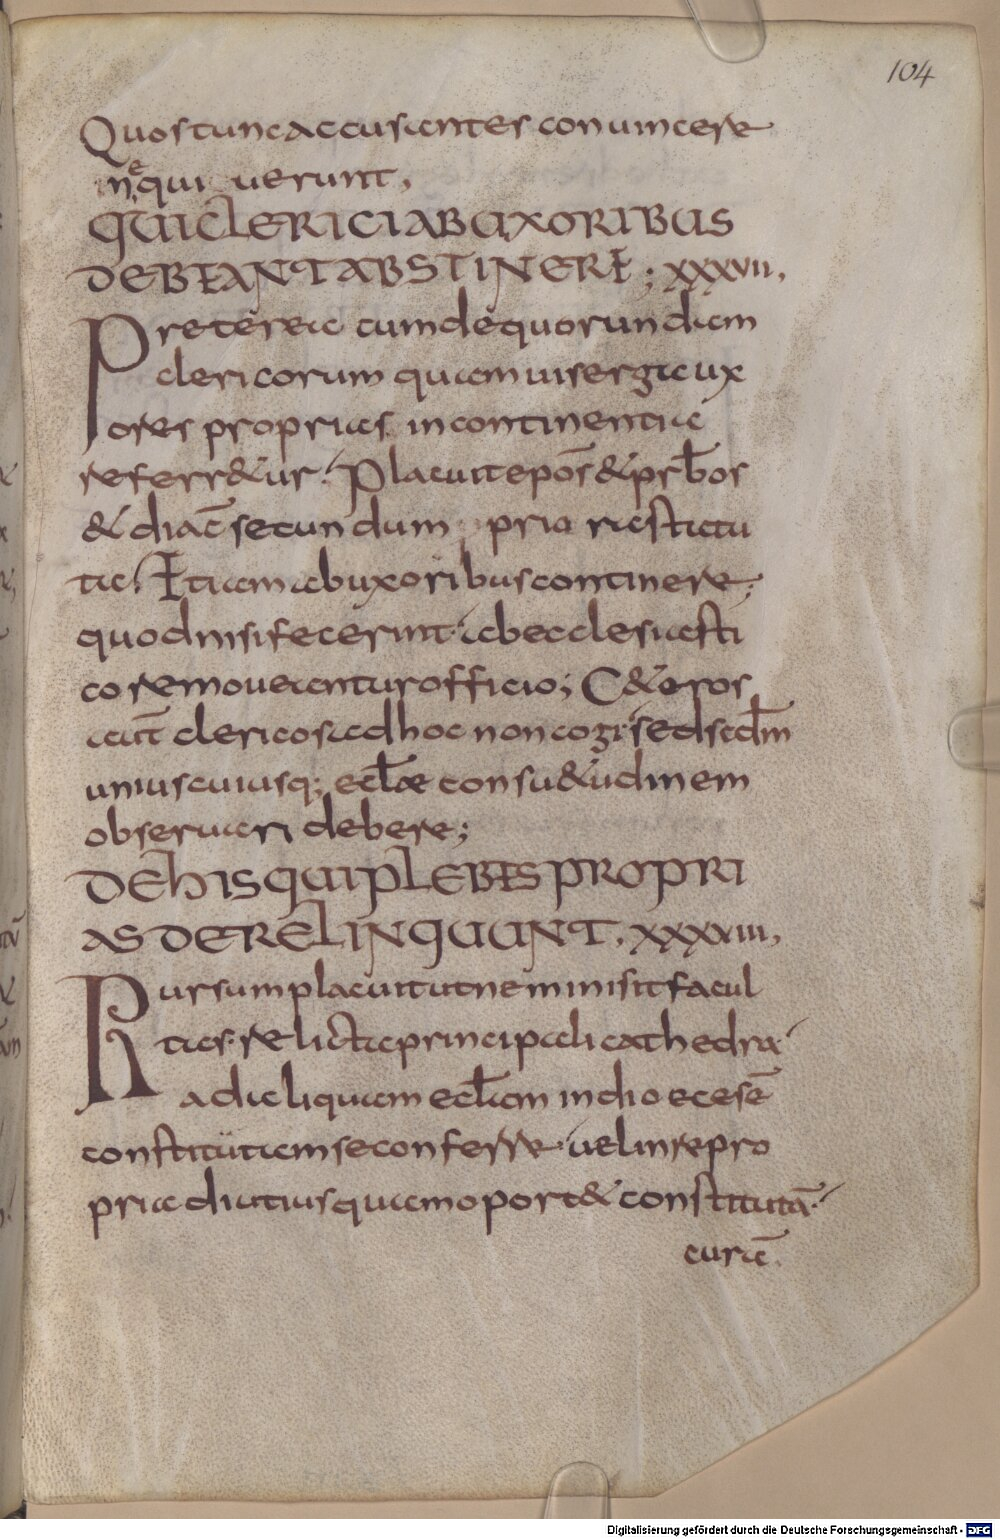 104
Quos tunc accusantes conuincere
nequi uerunt,
QUI CLERICI AB UXORIBUS
DEBEANT ABSTINERE; XXXVII,
Preterea cum de quorundam
clericorum quamuis erga ux
ores proprias incontinentia
referr&ur. Placuit epōs & prb̄os
& diac̄ secundum pria ria statu
ta. Etiam ab uxoribus continere;
quod nisi fecerint. ab ecclesiasti
co remoueantur officio; C&eros
aut̄ clericos ad hoc non cogi. sed scd̄m
uniuscuiusq; ecl̄æ consu&udinem
obseruari debere;
DE HIS QUI PLEBES PROPRI
AS DERELINQUUNT, XXXVIII,
Rursum placuit ut nemini sit facul
tas. relicta principali cathedra.
ad aliquam ecl̄iam in dioecesē
constitutam se conferre. uel in re pro
pria diutius quam oport& constitutā.
curā.
Digitalisierung gefördert durch die Deutsche Forschungsgemeinschaft - DFG